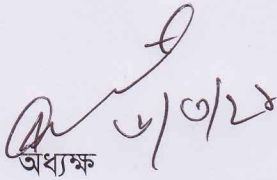 ৬/৩/২১
অধ্যক্ষ